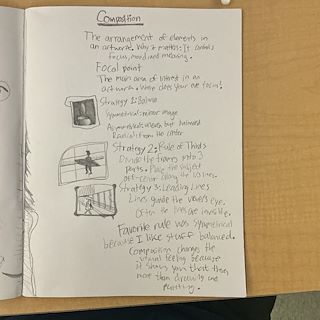 Composition
The arrangement of elements in
an artwork. Why it matters: It controls
focus, mood and meaning.
Focal point
The main area of interest in an
artwork. Where does your eye focus?
Strategy 1: Balance
Symmetrical: mirror image
Asymmetrical: uneven but balanced
Radical: from the center
Strategy 2: Rule of Thirds
Divide the frames into 3
parts. Place the subject
off-center along the lines.
Strategy 3: Leading Lines
Lines guide the viewers eye.
Often the lines are invisible.
Favorite rule was symmetrical
because I like stuff balanced.
Composition changes the
visual feeling because
it shows you that there
more than drawing and
painting.